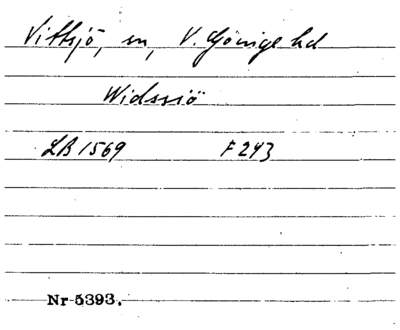 Vittsjö, sn, V. Göinge hd
Widssiö
LB 1569 F 243
Nr 5393.